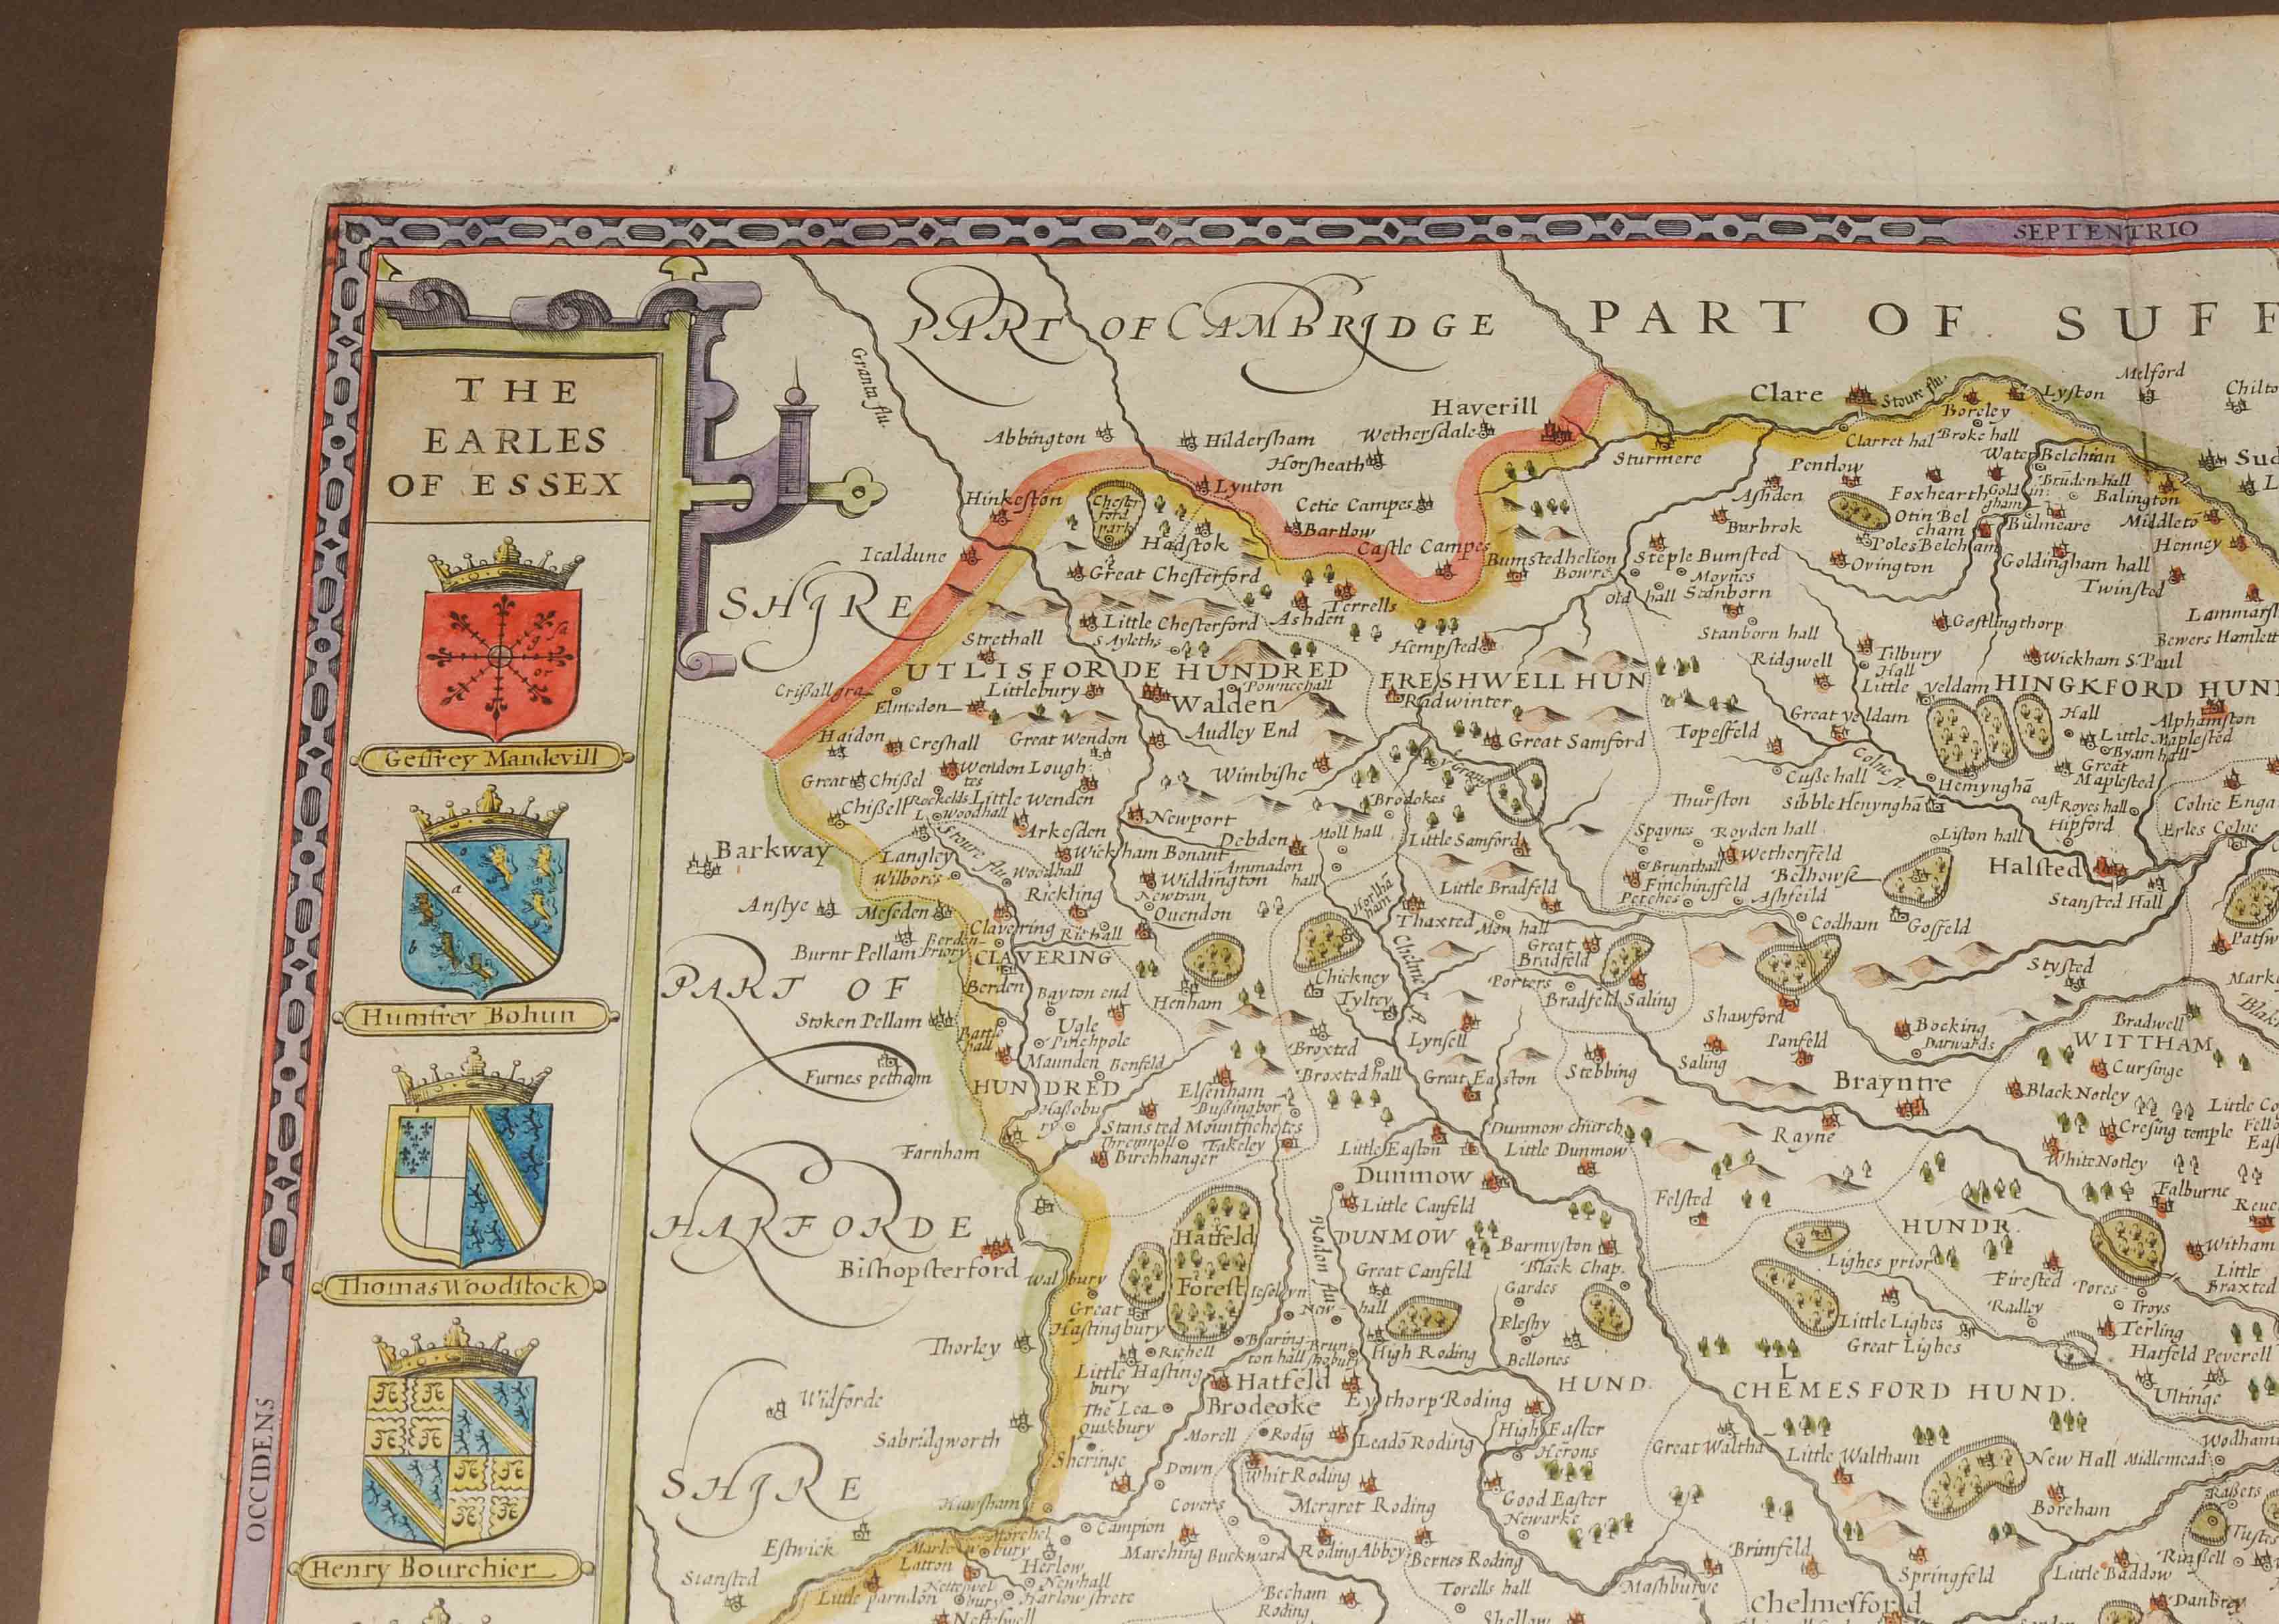 SEPTENTRIO
OCCIDENS
THE
EARLES
OF ESSEX
Geffrey Mandevill
Humfrey Bohun
Thomas Woodstock
Henry Bourchier
PART OF CAMBRIDGE
SHIRE
PART OF SUFF
PART OF
HARFORDE
SHIRE
Granta flu.
Abbington
Hildersham
Wethersdale
Haverill
Horsheath
Clare
Stoure flu.
Lyston
Melford
Chilto
Boreley
Clarret hal
Broke hall
Hinkeston
Chester
ford
park
Lynton
Cetie Campes
Sturmere
Pentlow
Water Belchian
Sud
Ashden
Foxhearth
Bruden hall
Balington
Icaldune
Hadstok
Bartlow
Castle Campes
Burbrok
Otin Bel
cham
Bulmeare
Middleto
Great Chesterford
Bumstedhelion
Bowre
Steple Bumsted
Poles Belcham
Ovington
Goldingham hall
Henney
Twinsted
Moynes
Old hall
Terrells
Little Chesterford
Ashden
Strethall
S Ayleths
Hempsted
Stanborn hall
Gestlingthorp
Lammarsh
Bewers Hamlett
UTLISFORDE HUNDRED
Ridgwell
Tilbury
Hall
Wickham S Paul
Littlebury
FRESHWELL HUN
Little yeldam
HINGKFORD HUN
Elmedon
Walden
Radwinter
Great yeldam
Hall
Alphamston
Haidon
Creshall
Great Wendon
Audley End
Great Samford
Topesfeld
Little Maplested
Byam hall
Great
Maplested
Great Chissel
Wendon Lough
tes
Wimbishe
Colne fl.
Cusse hall
Hemyngha
Little Wenden
Brodokes
Thurston
Sibble Henyngha
Royes hall
Colne Enga
Woodhall
Arkesden
Newport
Debden
Moll hall
Little Samford
Spaynes
Royden hall
Liston hall
Hipford
Erles Colne
Barkway
Langley
Stoure flu.
Wickham Bonant
Wilbores
Woodhall
Ammadon
hall
Brunthall
Wethersfeld
Belhowse
Halsted
Widdington
Little Bradfeld
Finchingfeld
Anstye
Meseden
Rickling
Newtran
Quendon
Thaxted
Petches
Ashfeild
Stansted Hall
Clavering
Mon hall
Codham
Gosfeld
Burnt Pellam
Berden
Priory
CLAVERING
Great
Bradfeld
Berden
Bayton end
Henham
Chickney
Tyltey
Chelmer fl.
Porters
Bradfeld Saling
Stysted
Stoken Pellam
Battle
hall
Ugle
Pinchpole
Shawford
Bradwell
Furnes pelham
Maunden
Benfeld
Broxted
Lynsell
Bocking
Panfeld
WITTHAM
HUNDRED
Elsenham
Broxted hall
Great Easton
Stebbing
Saling
Brayntre
Cursinge
Black Notley
Stansted Mountfichetes
Takeley
Birchhanger
Farnham
Little Easton
Dunmow church
Little Dunmow
Rayne
Cresing temple
White Notley
Dunmow
Little Canfeld
Felsted
Falburne
Hatfeld
Forest
DUNMOW
Barmyston
Black Chap.
HUNDR.
Witham
Bishopsterford
Walbury
Roden flu.
Great Canfeld
Gardes
Lighes prior
Firested
Little
Braxted
Great
Hastingbury
New hall
Plesby
Radley
Troys
Terling
Thorley
Richell
High Roding
Bellones
Little Lighes
Great Lighes
Hatfeld Peverell
Little Hasting
bury
Hatfeld
Brodeoke
HUND.
CHEMESFORD HUND.
Ultinge
Widforde
The Lea
Quikbury
Eythorp Roding
Sabridgworth
Morell
Rodig
Leado Roding
High Easter
Herons
Great Waltha
Little Waltham
New Hall
Midlemead
Sheringe
Down
Whit Roding
Covers
Mergret Roding
Good Easter
Newarke
Boreham
Estwick
Campion
Marching
Buckward
Roding Abbey
Bernes Roding
Brimfeld
Latton
Herlow
Newhall
Springfeld
Little Baddow
Stansted
Little parndon
Harlow strete
Becham
Roding
Torells hall
Mashburye
Chelmesford
Danbrey
Netteswell
Shellow